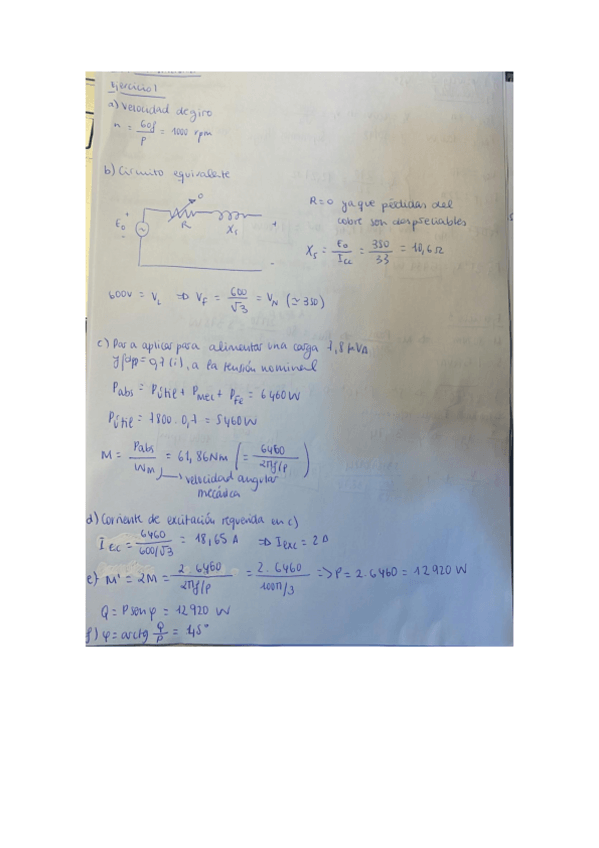 Ejercicio 1
a) Velocidad de giro
n = 60f/p = 1000 rpm
b) Circuito equivalente
R=0 ya que pérdidas del
cobre son despreciables
E0 + - R 0 Xs + -
Xs = E0/Icc = 350/33 = 10,6 Ω
600V = VL ⇒ VF = 600/√3 = VN (≃ 350)
c) Par a aplicar para alimentar una carga 7,8 kVA
y fdp=0,7 (i), a la tensión nominal
Pabs = Pútil + Pmec + PFe = 6460 W
Pútil = 7800 · 0,7 = 5460 W
M = Pabs/Wm = 61,86 Nm (= 6460/2πf/p)
velocidad angular
mecánica
d) Corriente de excitación requerida en c)
Iec = 6460/600/√3 = 18,65 A ⇒ Iexc = 2 A
e) M' = 2M = 2 · 6460/2πf/p = 2 · 6460/100π/3 => P = 2 · 6460 = 12920 W
Q = P sen φ = 12920 W
f) φ = arctg Q/P = 45°